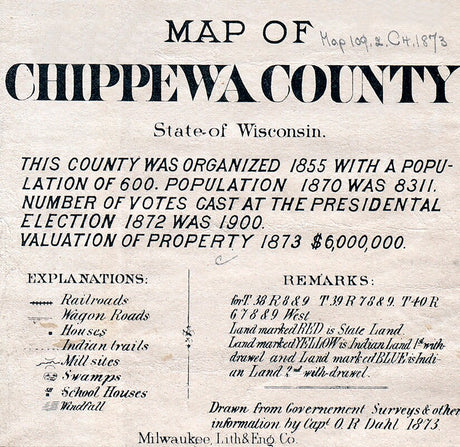 MAP OF
Map 109.2.C4.1873
CHIPPEWA COUNTY
State of Wisconsin.
THIS COUNTY WAS ORGANIZED 1855 WITH A POPU-
LATION OF 600. POPULATION 1870 WAS 8311.
NUMBER OF VOTES CAST AT THE PRESIDENTAL
ELECTION 1872 WAS 1900.
VALUATION OF PROPERTY 1873 $6,000,000.
EXPLANATIONS:
Railroads
Wagon Roads
Houses
Indian trails
Mill sites
Swamps
School Houses
Windfall
REMARKS:
for T 38 R 8 & 9 T 39 R 7 8 & 9. T 40 R
6 7 8 & 9 West
Land marked RED is State Land.
Land marked YELLOW is Indian Land 1st with-
drawel and Land marked BLUE is Indi-
an Land 2nd with-drawel.
Drawn from Governement Surveys & other
information by Capt O. R Dahl 1873
Milwaukee, Lith & Eng. Co.